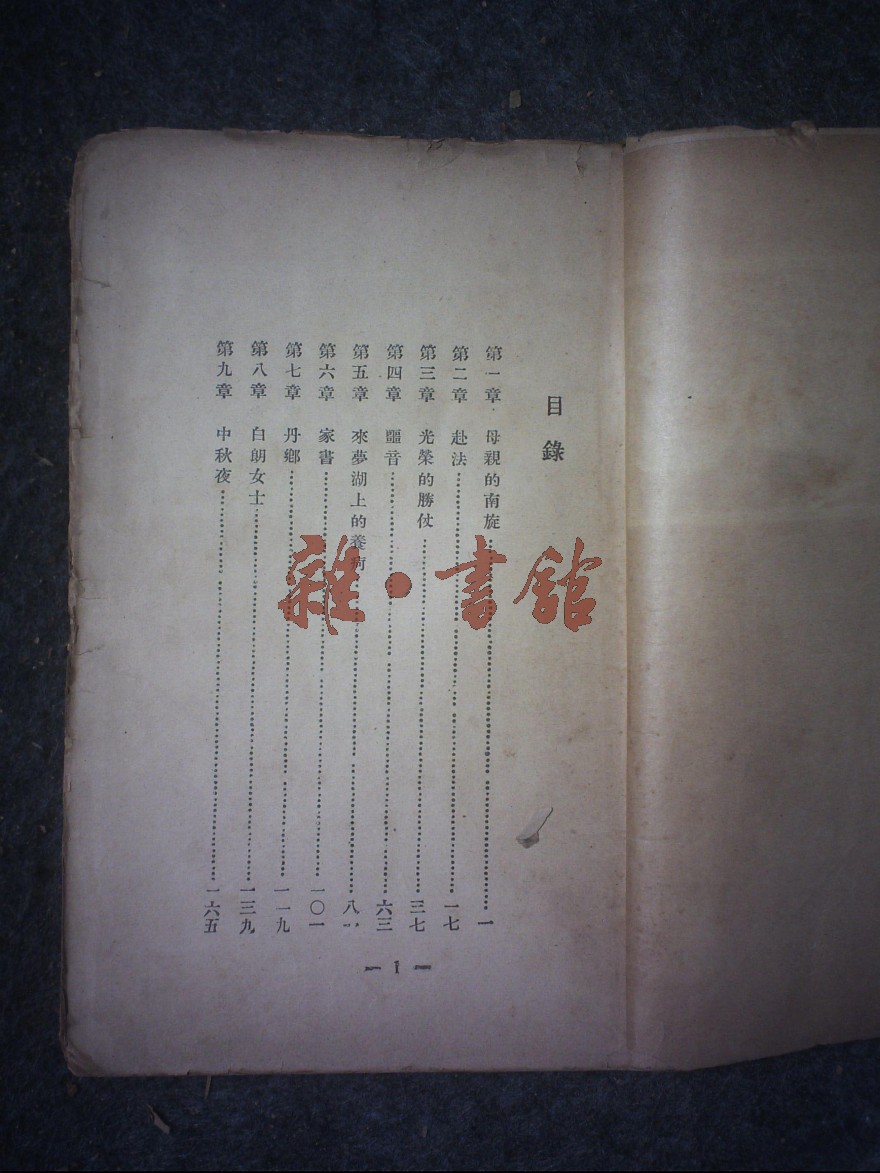 目錄
第一章 母親的南旋 一
第二章 赴法 一七
第三章 光榮的勝仗 三七
第四章 噩音 六三
第五章 來夢湖上的養病 八
第六章 家書 一〇一
第七章 丹鄉 一一九
第八章 白朗女士 一三九
第九章 中秋夜 一六五
— 1 —
雜·書館